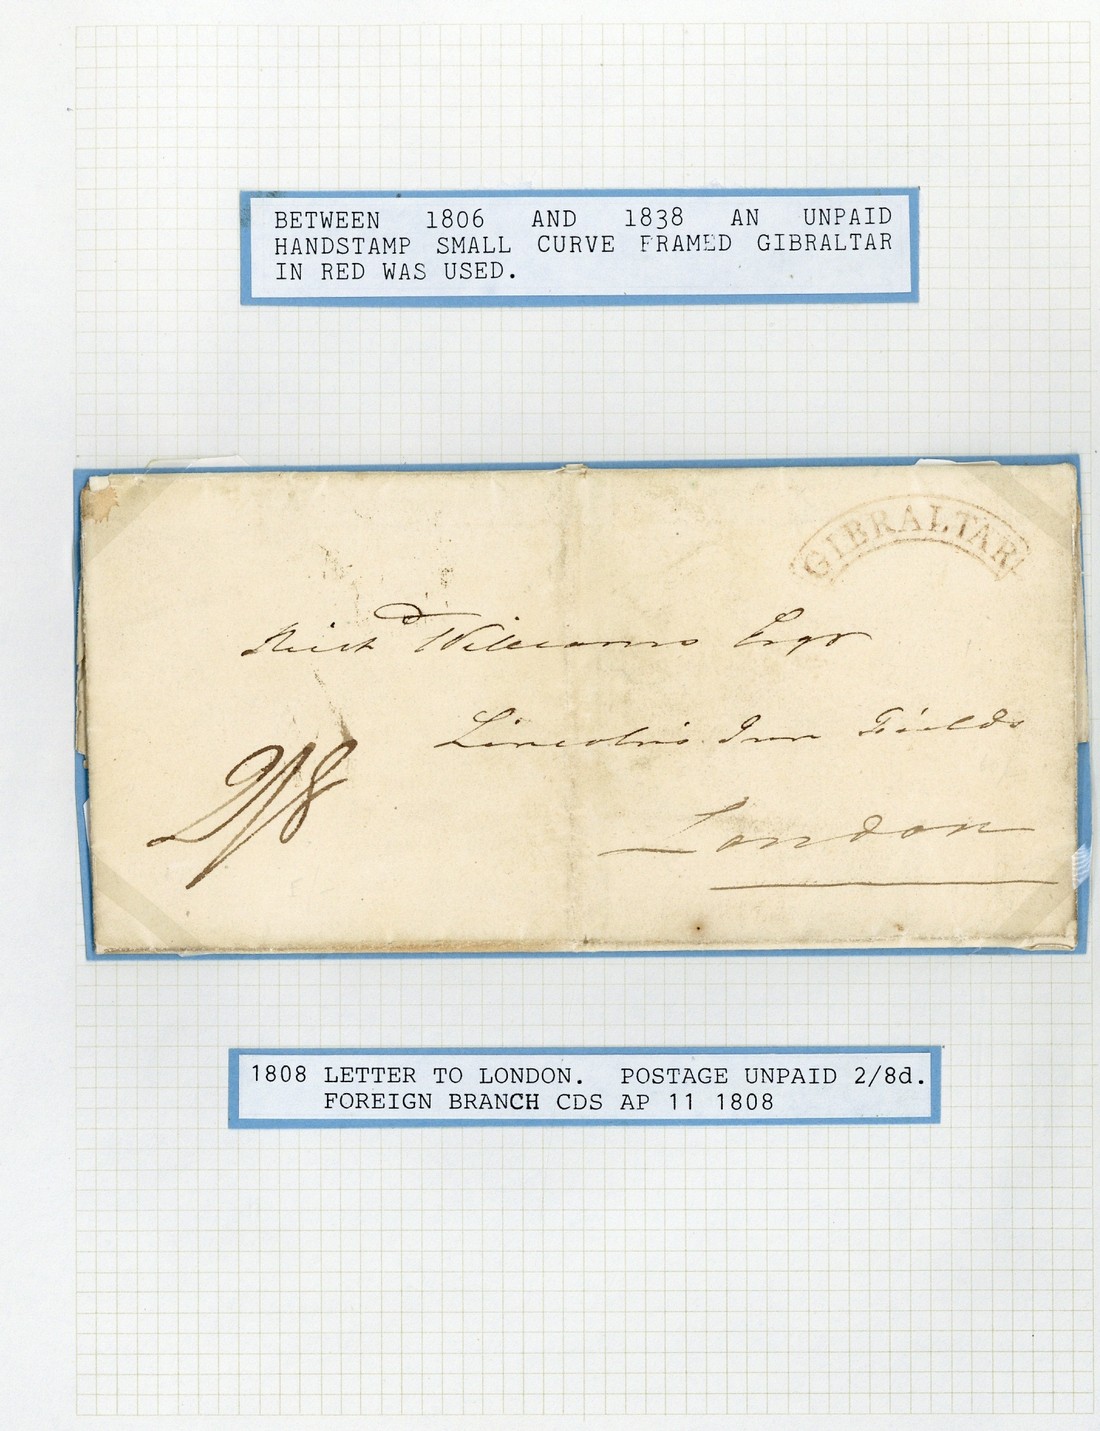 BETWEEN 1806 AND 1838 AN UNPAID
HANDSTAMP SMALL CURVE FRAMED GIBRALTAR
IN RED WAS USED.
GIBRALTAR
Richd Williams Esqr
Lincolns Inn Fields
2/8
London
1808 LETTER TO LONDON. POSTAGE UNPAID 2/8d.
FOREIGN BRANCH CDS AP 11 1808